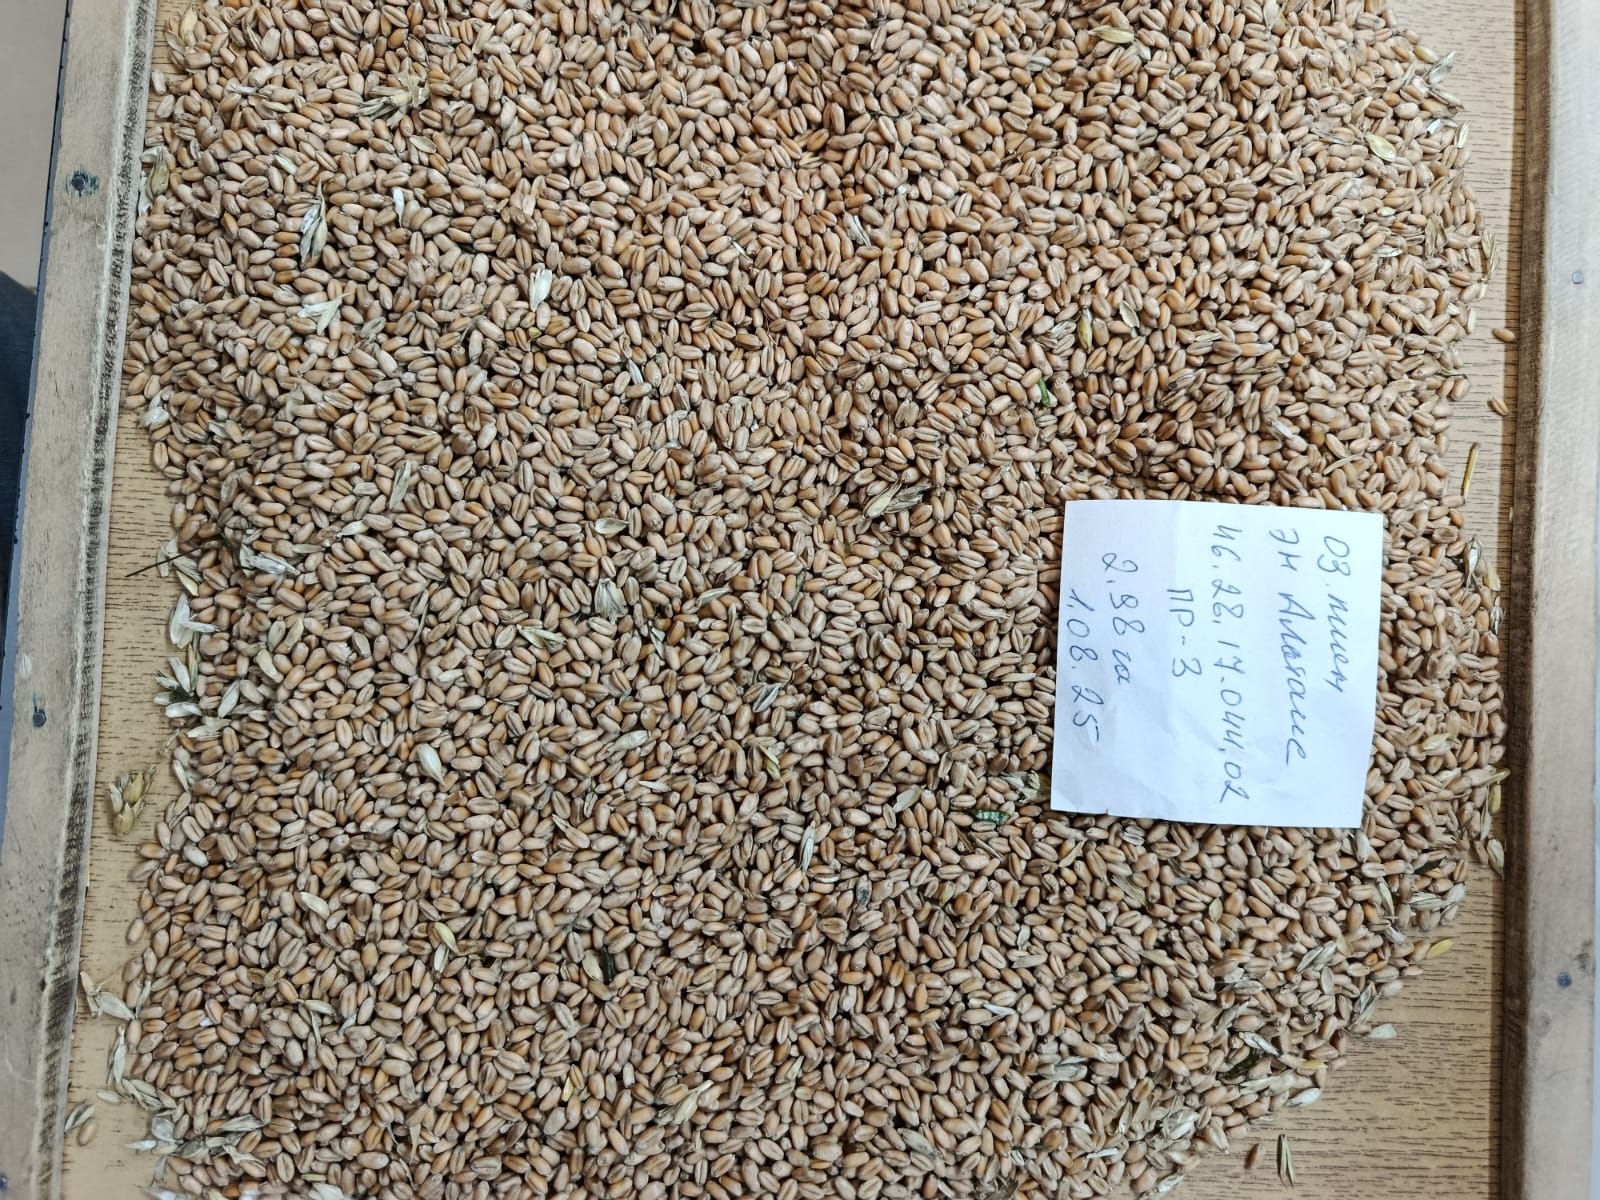 оз. пшен
ЭН Алабане
46.28.17.044.02
ПР-3
2.98 га
1.08.25